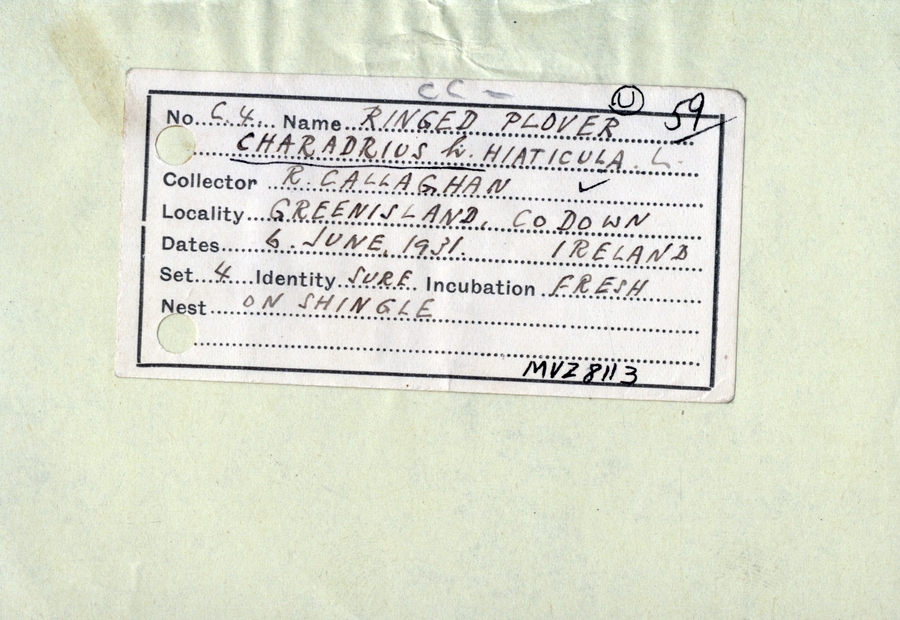 CC -
(U) 59
No. C.4. Name RINGED PLOVER
CHARADRIUS h. HIATICULA. L.
Collector R. CALLAGHAN ✓
Locality GREENISLAND, CO DOWN
Dates 6. JUNE, 1931. IRELAND
Set 4 Identity SURE. Incubation FRESH
Nest ON SHINGLE
MVZ 8113